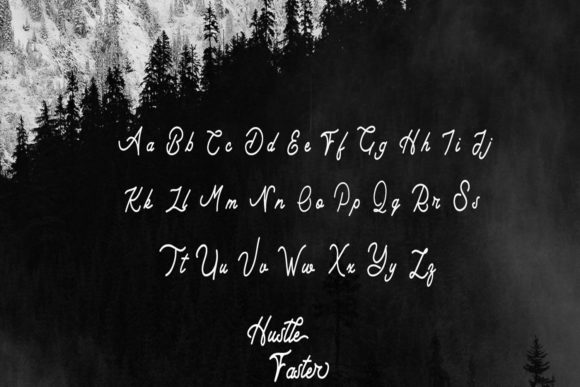 Aa Bb Cc Dd Ee Ff Gg Hh Ii Jj
Kk Ll Mm Nn Oo Pp Qq Rr Ss
Tt Uu Vv Ww Xx Yy Zz
Hustle
Faster